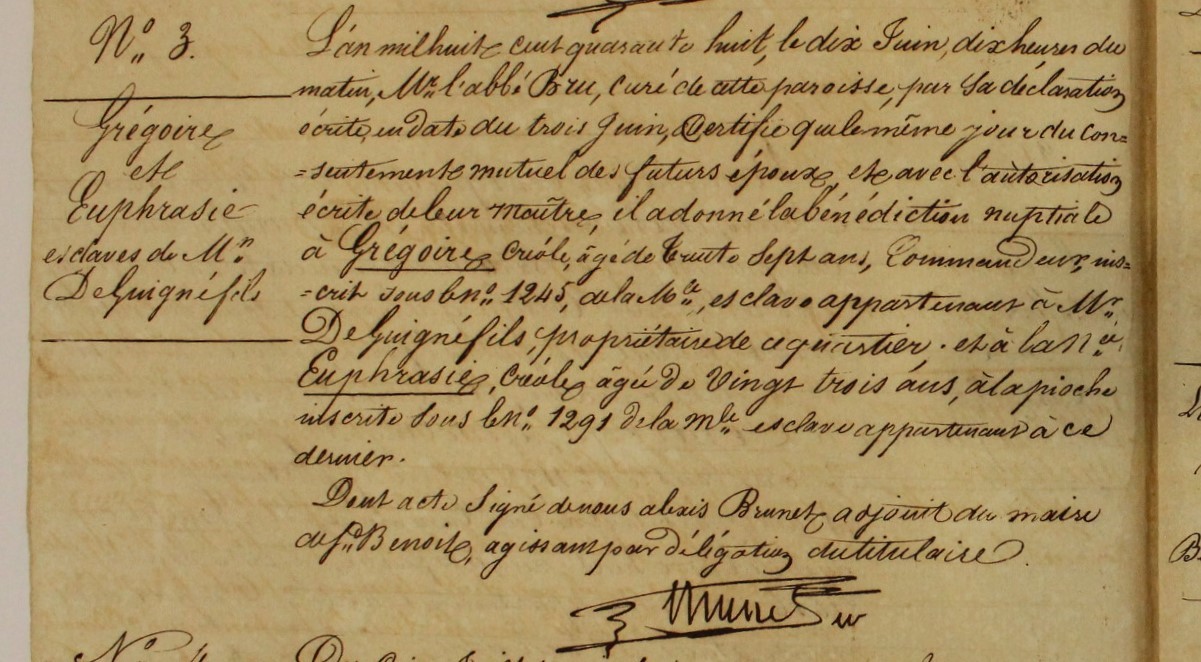 N.o 3.
Grégoire
et
Euphrasie
esclaves de M.r
DeGuigné fils
L'an mil huit cent quarante huit, le dix Juin, dix heures du
matin, Mr. l'abbé Bru, curé de cette paroisse, par sa déclaration
écrite, en date du trois Juin, Certifie que le même jour du con=
=sentement mutuel des futurs époux, et avec l'autorisation
écrite de leur maître, il a donné la bénédiction nuptiale
à Grégoire, créole, âgé de Trente Sept ans, Commandeur, ins=
=crit sous le n.o 1245, de la M.le, esclave appartenant à Mr.
DeGuigné fils, propriétaire de ce quartier. et à la N.ée
Euphrasie, créole, âgée de Vingt trois ans, à la pioche
inscrite sous le n.o 1291 de la m.le esclave appartenant à ce
dernier.
Dont acte Signé de nous alexis Brunet, adjoint du maire
de St. Benoit, agissant par délégation du titulaire.
Brunet
N.o 4